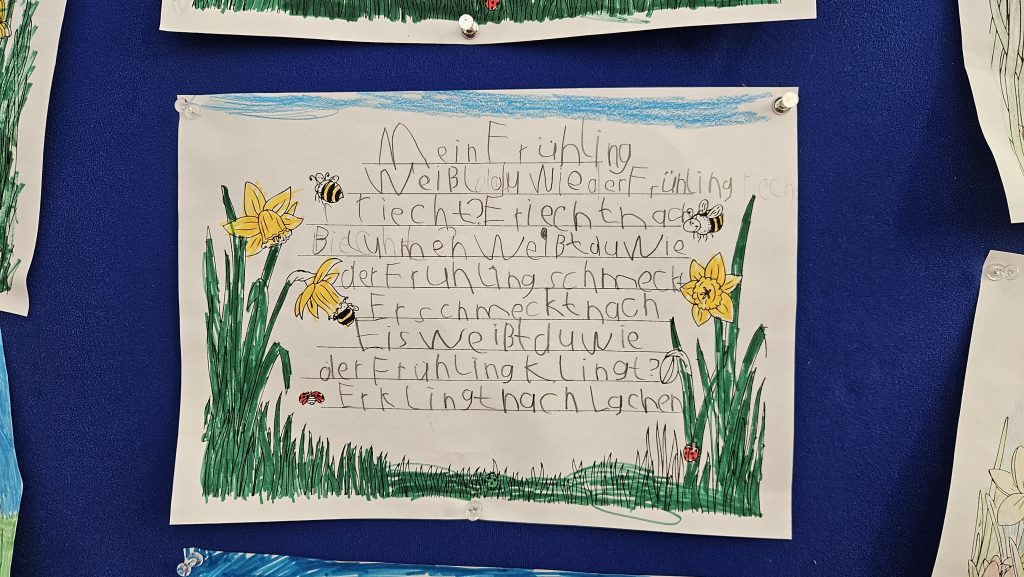 Mein Frühling
Weißt du Wie der Frühling
riecht? Er riecht nach
Blumen Weißt du Wie
der Frühling schmeckt
Er schmeckt nach
Eis Weißt du wie
der Fruhling Klingt?
Er klingt nach Lachen